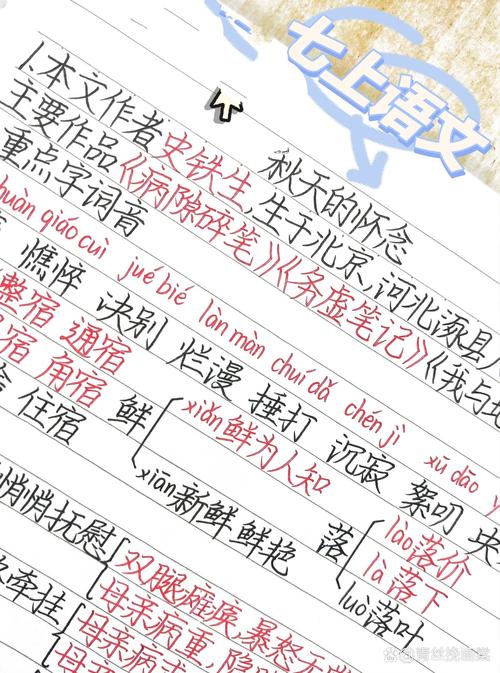 七上语文
秋天的怀念
1.本文作者史铁生,生于北京,河北涿县人
主要作品《病隙碎笔》《务虚笔记》《我与地
重点字词音
huàn qiáo cuì jué bié làn màn chuí dǎ chén jì xù dāo
憔悴 诀别 烂漫 捶打 沉寂 絮叨 央
整宿 通宿
宿 角宿
住宿
鲜
xiǎn鲜为人知
xiān新鲜 鲜艳
落
lào落价
là落下
luò落叶
悄悄抚慰
双腿瘫痪,暴怒无常
母亲病重,隐
牵挂
母亲病
母亲